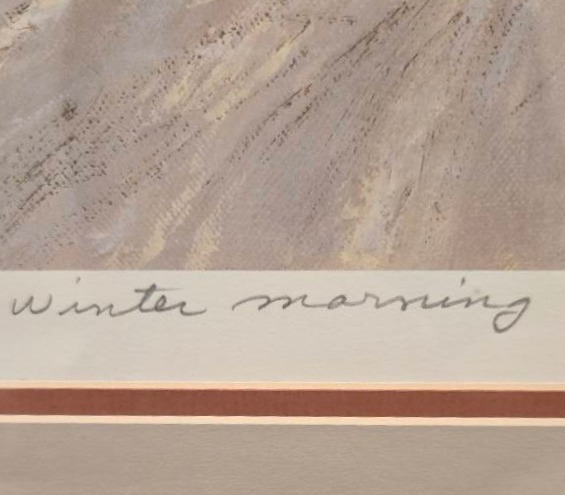 Winter morning